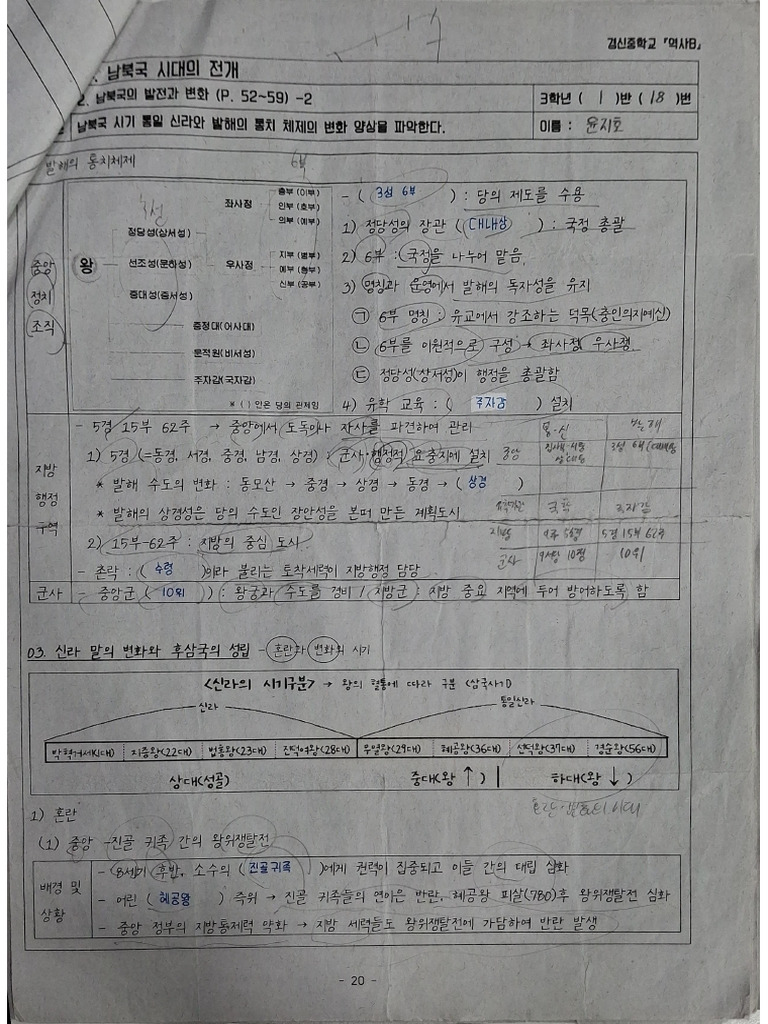 경신중학교 『역사B』
. 남북국 시대의 전개
2. 남북국의 발전과 변화 (P. 52~59) -2
3학년 ( 1 )반 ( 18 )번
남북국 시기 통일 신라와 발해의 통치 체제의 변화 양상을 파악한다.
이름 : 윤지호
발해의 통치체제
6부
중앙
정치
조직
3성
왕
정당성(상서성)
선조성(문하성)
중대성(중서성)
좌사정
우사정
충부 (이부)
인부 (호부)
의부 (예부)
지부 (병부)
예부 (형부)
신부 (공부)
중정대(어사대)
문적원(비서성)
주자감(국자감)
* ( ) 안은 당의 관제임
- ( 3성 6부 ) : 당의 제도를 수용
1) 정당성의 장관 ( 대내상 ) : 국정 총괄
2) 6부 : 국정을 나누어 맡음
3) 명칭과 운영에서 발해의 독자성을 유지
㉠ 6부 명칭 : 유교에서 강조하는 덕목(충인의지예신)
㉡ 6부를 이원적으로 구성 → 좌사정, 우사정
㉢ 정당성(상서성)이 행정을 총괄함
4) 유학 교육 : ( 주자감 ) 설치
지방
행정
구역
- 5경 15부 62주 → 중앙에서 도독이나 자사를 파견하여 관리
1) 5경 (=동경, 서경, 중경, 남경, 상경) : 군사·행정적 요충지에 설치
* 발해 수도의 변화 : 동모산 → 중경 → 상경 → 동경 → ( 상경 )
* 발해의 상경성은 당의 수도인 장안성을 본떠 만든 계획도시
2) 15부-62주 : 지방의 중심 도시
- 촌락 : ( 수령 )이라 불리는 토착세력이 지방행정 담당
통·신
발해
중앙
집사부, 시중
상대등
3성 6부(대내상)
국학
주자감
지방
9주 5소경
5경 15부 62주
군사
9서당 10정
10위
군사
- 중앙군 ( 10위 ) : 왕궁과 수도를 경비 / 지방군 : 지방 중요 지역에 두어 방어하도록 함
03. 신라 말의 변화와 후삼국의 성립 - 혼란과 변화의 시기
<신라의 시기구분> → 왕의 혈통에 따라 구분 <삼국사기>
신라
통일신라
박혁거세(1대)
지증왕(22대)
법흥왕(23대)
진덕여왕(28대)
무열왕(29대)
혜공왕(36대)
선덕왕(37대)
경순왕(56대)
상대(성골)
중대(왕 ↑)
하대(왕 ↓)
1) 혼란
(1) 중앙 - 진골 귀족 간의 왕위쟁탈전
배경 및
상황
- 8세기 후반, 소수의 ( 진골귀족 )에게 권력이 집중되고 이들 간의 대립 심화
- 어린 ( 혜공왕 ) 즉위 → 진골 귀족들의 연이은 반란, 혜공왕 피살(780)후 왕위쟁탈전 심화
- 중앙 정부의 지방통제력 약화 → 지방 세력들도 왕위쟁탈전에 가담하여 반란 발생
- 20 -